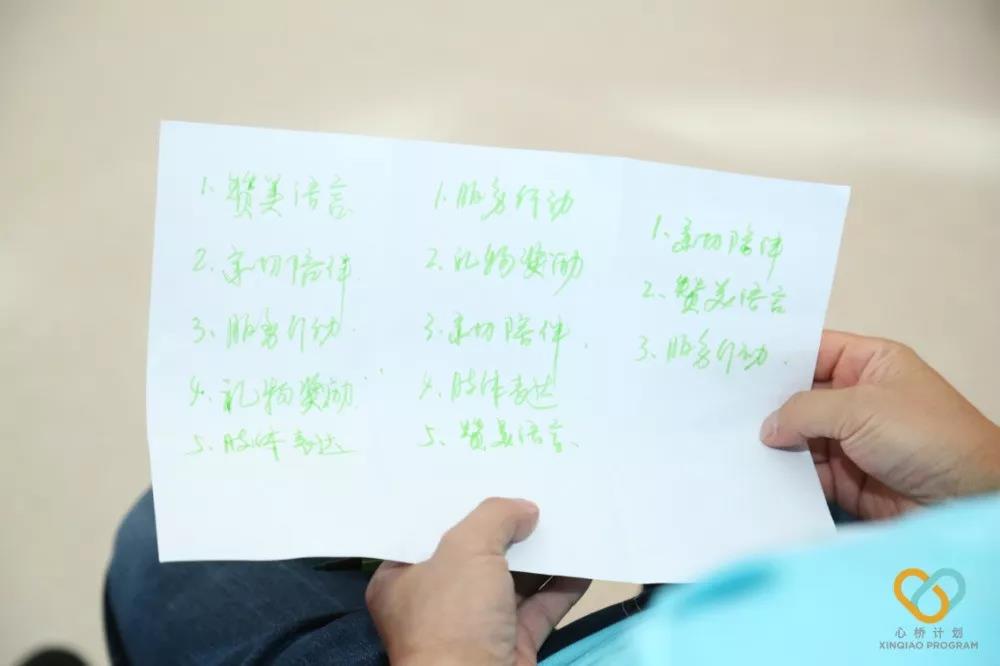 1. 赞美语言
2. 亲切陪伴
3. 服务行动
4. 礼物奖励
5. 肢体表达
1. 服务行动
2. 礼物奖励
3. 亲切陪伴
4. 肢体表达
5. 赞美语言
1. 亲切陪伴
2. 赞美语言
3. 服务行动
心桥计划
XINQIAO PROGRAM